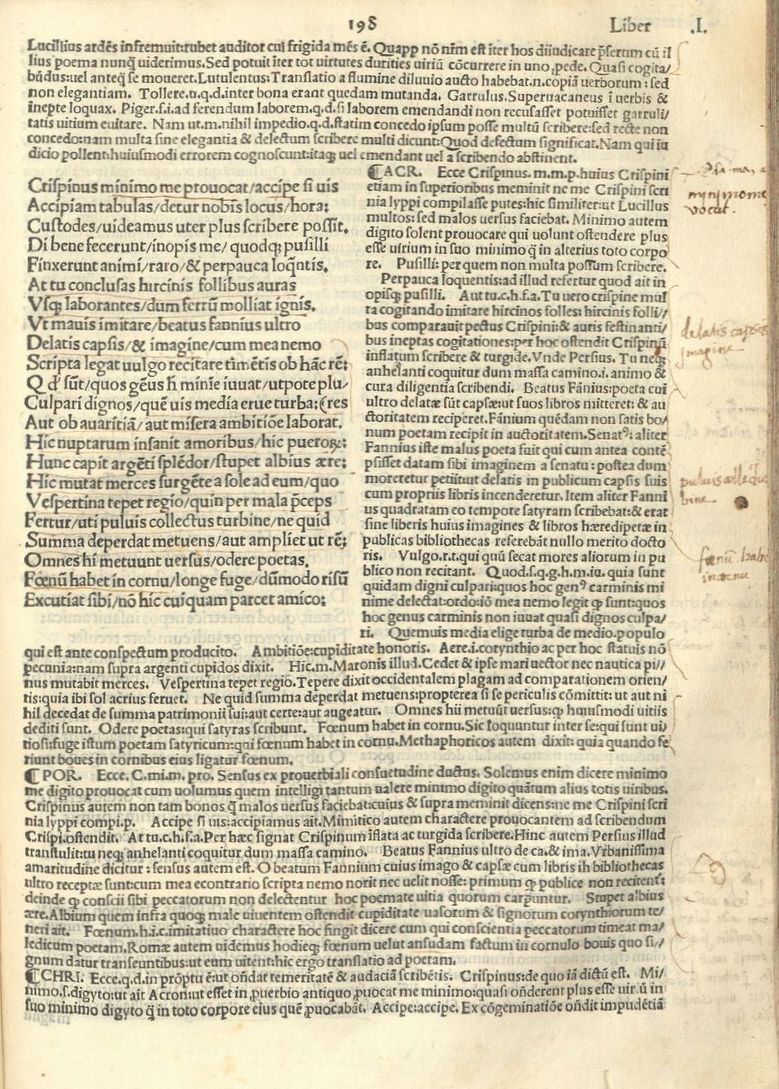 198 Liber .I.
Lucillius ardēs infremuit:rubet auditor cui frigida mēs ē. Quapp nō nr̄m est iter hos diiudicare p̄sertum cū il
lius poema nunq̄ uiderimus. Sed potuit iter tot uirtutes durities uiriū cōcurrere in uno,pede. Quasi cogita/
būdus:uel anteq̄ se moueret. Lutulentus:Translatio a flumine diluuio aucto habebat.n.copiā uerborum:sed
non elegantiam. Tollere.u.q.d.inter bona erant quedam mutanda. Garrulus.Superuacaneus ī uerbis &
inepte loquax. Piger.f.i.ad ferendum laborem.q.d.si laborem emendandi non recusasset potuisset garruli/
tatis uitium euitare. Nam ut.m.nihil impedio.q.d.statim concedo ipsum posse multū scribere:sed recte non
concedo:nam multa sine elegantia & delectum scribere multi dicunt:Quod defectum significat.Nam qui iu
dicio pollent:huiusmodi errorem cognoscunt:itaq; uel emendant uel a scribendo abstinent.
Crispinus minimo me prouocat/accipe si uis
Accipiam tabulas/detur nobis locus/hora:
Custodes/uideamus uter plus scribere possit.
Di bene fecerunt/inopis me/quodq; pusilli
Finxerunt animi/raro/& perpauca loq̄ntis.
At tu conclusas hircinis follibus auras
Vsq; laborantes/dum ferrū molliat ignis.
Vt mauis imitare/beatus Fannius ultro
Delatis capsis/& imagine/cum mea nemo
Scripta legat uulgo recitare tīmētis ob hāc rē:
Q d' sūt/quos gēus h̄ minīe iuuat/utpote plu/
Culpari dignos/quē uis media erue turba:(res
Aut ob auaritiā/aut misera ambitiōe laborat.
Hic nuptarum insanit amoribus/hic puerorꝝ:
Hunc capit argēti splēdor/stupet albius ære:
Hic mutat merces surgēte a sole ad eum/quo
Vespertina tepet regio/quin per mala p̄ceps
Fertur/uti puluis collectus turbine/ne quid
Summa deperdat metuens/aut ampliet ut rē:
Omnes hi metuunt uersus/odere poetas.
Fœnū habet in cornu/longe fuge/dūmodo risū
Excutiat sibi/nō hic cuiquam parcet amico:
¶ACR. Ecce Crispinus. m.m.p.huius Crispini
etiam in superioribus meminit ne me Crispini scri
nia lyppi compilasse putes:hic similiter:ut Lucillus
multos:sed malos uersus faciebat. Minimo autem
digito solent prouocare qui uolunt ostendere plus
esse uirium in suo minimo q̄ in alterius toto corpo
re. Pusilli:per quem non multa possum scribere.
Perpauca loquentis:ad illud refertur quod ait in
opisq; pusilli. Aut tu.c.h.f.a.Tu uero crispine mul
ta cogitando imitare hircinos folles: hircinis folli/
bus comparauit pectus Crispini:& auris festinanti/
bus ineptas cogitationes:per hoc ostendit Crispinū
inflatum scribere & turgide.Vnde Persius. Tu neq;
anhelanti coquitur dum massa camino.i.animo &
cura diligentia scribendi. Beatus Fānius:poeta cui
ultro delatæ sūt capsæ:ut suos libros mitteret: & au
ctoritatem reciperet. Fānium quēdam non satis bo/
num poetam recipit in auctoritatem.Senatꝰ: aliter
Fannius iste malus poeta fuit qui cum antea contē
psisset datam sibi imaginem a senatu:postea dum
moreretur petiitut delatis in publicum capsis suis
cum propriis libris incenderetur. Item aliter Fanni
us quadratam eo tempore satyram scribebat:& erat
sine liberis huius imagines & libros hæredipetæ in
publicas bibliothecas referebāt nullo merito docto
ris. Vulgo.r.t.qui quū secat mores aliorum in pu
blico non recitant. Quod.s.q.g.h.m.iu. quia sunt
quidam digni culpari:quos hoc genꝰ carminis mi
nime delectat:ordo:iō mea nemo legit q; sunt:quos
hoc genus carminis non iuuat quasi dignos culpa/
ri. Quemuis media elige turba de medio.populo
qui est ante conspectum producito. Ambitiōe:cupiditate honoris. Aere.i.corynthio ac per hoc statuis nō
pecunia:nam supra argenti cupidos dixit. Hic.m.Maronis illud.Cedet & ipse mari uector nec nautica pi//
nus mutabit merces. Vespertina tepet regio.Tepere dixit occidentalem plagam ad comparationem orien/
tis:quia ibi sol acrius feruet. Ne quid summa deperdat metuens:propterea si se periculis cōmittit: ut aut ni
hil decedat de summa patrimonii sui:aut certe:aut augeatur. Omnes hii metuūt uersus:q; huiusmodi uitiis
dediti sunt. Odere poetas:qui satyras scribunt. Fœnum habet in cornu.Sic loquuntur inter se:qui sunt ui/
tiosi:fuge istum poetam satyricum:qui fœnum habet in cornu.Methaphoricos autem dixit: quia quando fe
riunt boues in cornibus eius ligatur fœnum.
¶POR. Ecce.C.mi.m. pro. Sensus ex prouerbiali consuetudine ductus. Solemus enim dicere minimo
me digito prouocat cum uolumus quem intelligi tantum ualere minimo digito quātum alius totis uiribus.
Crispinus autem non tam bonos q̄ malos uersus faciebat:cuius & supra meminit dicens:ne me Crispini scri
nia lyppi compi.p. Accipe si uis:accipiamus ait. Mimitico autem charactere prouocantem ad scribendum
Crispi.ostendit. At tu.c.h.f.a.Per hæc signat Crispinum īflata ac turgida scribere.Hinc autem Persius illud
transtulit:tu neq; anhelanti coquitur dum massa camino. Beatus Fannius ultro de ca.& ima.Vrbanissima
amaritudine dicitur : sensus autem est. O beatum Fannium cuius imago & capsæ cum libris ih bibliothecas
ultro receptæ sunt:cum mea econtrario scripta nemo norit nec uelit nosse: primum q; publice non recitent:
deinde q; conscii sibi peccatorum non delectentur hoc poemate uitia quorum carpuntur. Stupet albius
ære.Albium quem infra quoq; male uiuentem ostendit cupiditate uasorum & signorum corynthiorum te/
neri ait. Fœnum.h.i.c.imitatiuo charactere hoc fingit dicere cum qui conscientia peccatorum timeat ma/
ledicum poetam.Romæ autem uidemus hodieq; fœnum uelut ansudam factum in cornulo bouis quo si/
gnum datur transeuntibus:ut eum uitent:hic ergo translatio ad poetam.
¶CHRI. Ecce.q.d.in prōptu ē:ut on̄dat temeritatē & audaciā scribētis. Crispinus:de quo iā dictū est. Mi/
nimo.s.digyto:ut ait Acron:ut esset in ꝓuerbio antiquo,ꝓuocat me minimo:quasi on̄derent plus esse uirū in
suo minimo digyto q̄ in toto corpore eius quē ꝓuocabāt. Accipe:accipe. Ex cōgeminatiōe on̄dit impudētiā
minimo me
vocat.
delatis capsis
imagine
puluis collectus
bine
fœnū habe
in cornu